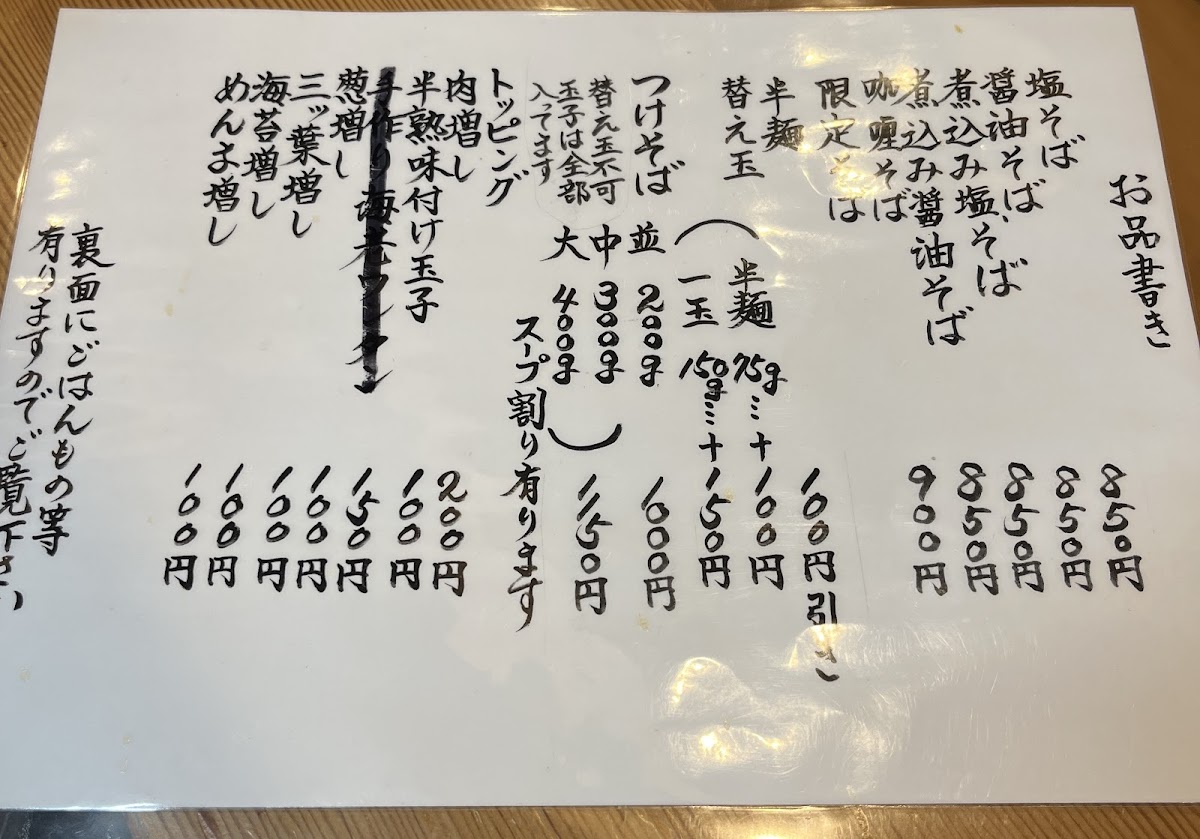 お品書き
塩そば 850円
醤油そば 850円
煮込み塩そば 850円
煮込み醤油そば 850円
咖喱そば 900円
限定そば
半麺 100円引き
替え玉
半麺 75g…+100円
一玉 150g…+150円
つけそば
並 200g 1000円
中 300g
大 400g 1150円
替え玉不可
玉子は全部
入ってます
スープ割り有ります
トッピング
肉増し 200円
半熟味付け玉子 100円
手作り海老ワンタン 150円
葱増し 100円
三ッ葉増し 100円
海苔増し 100円
めんま増し 100円
裏面にごはんもの等
有りますのでご覧下さい